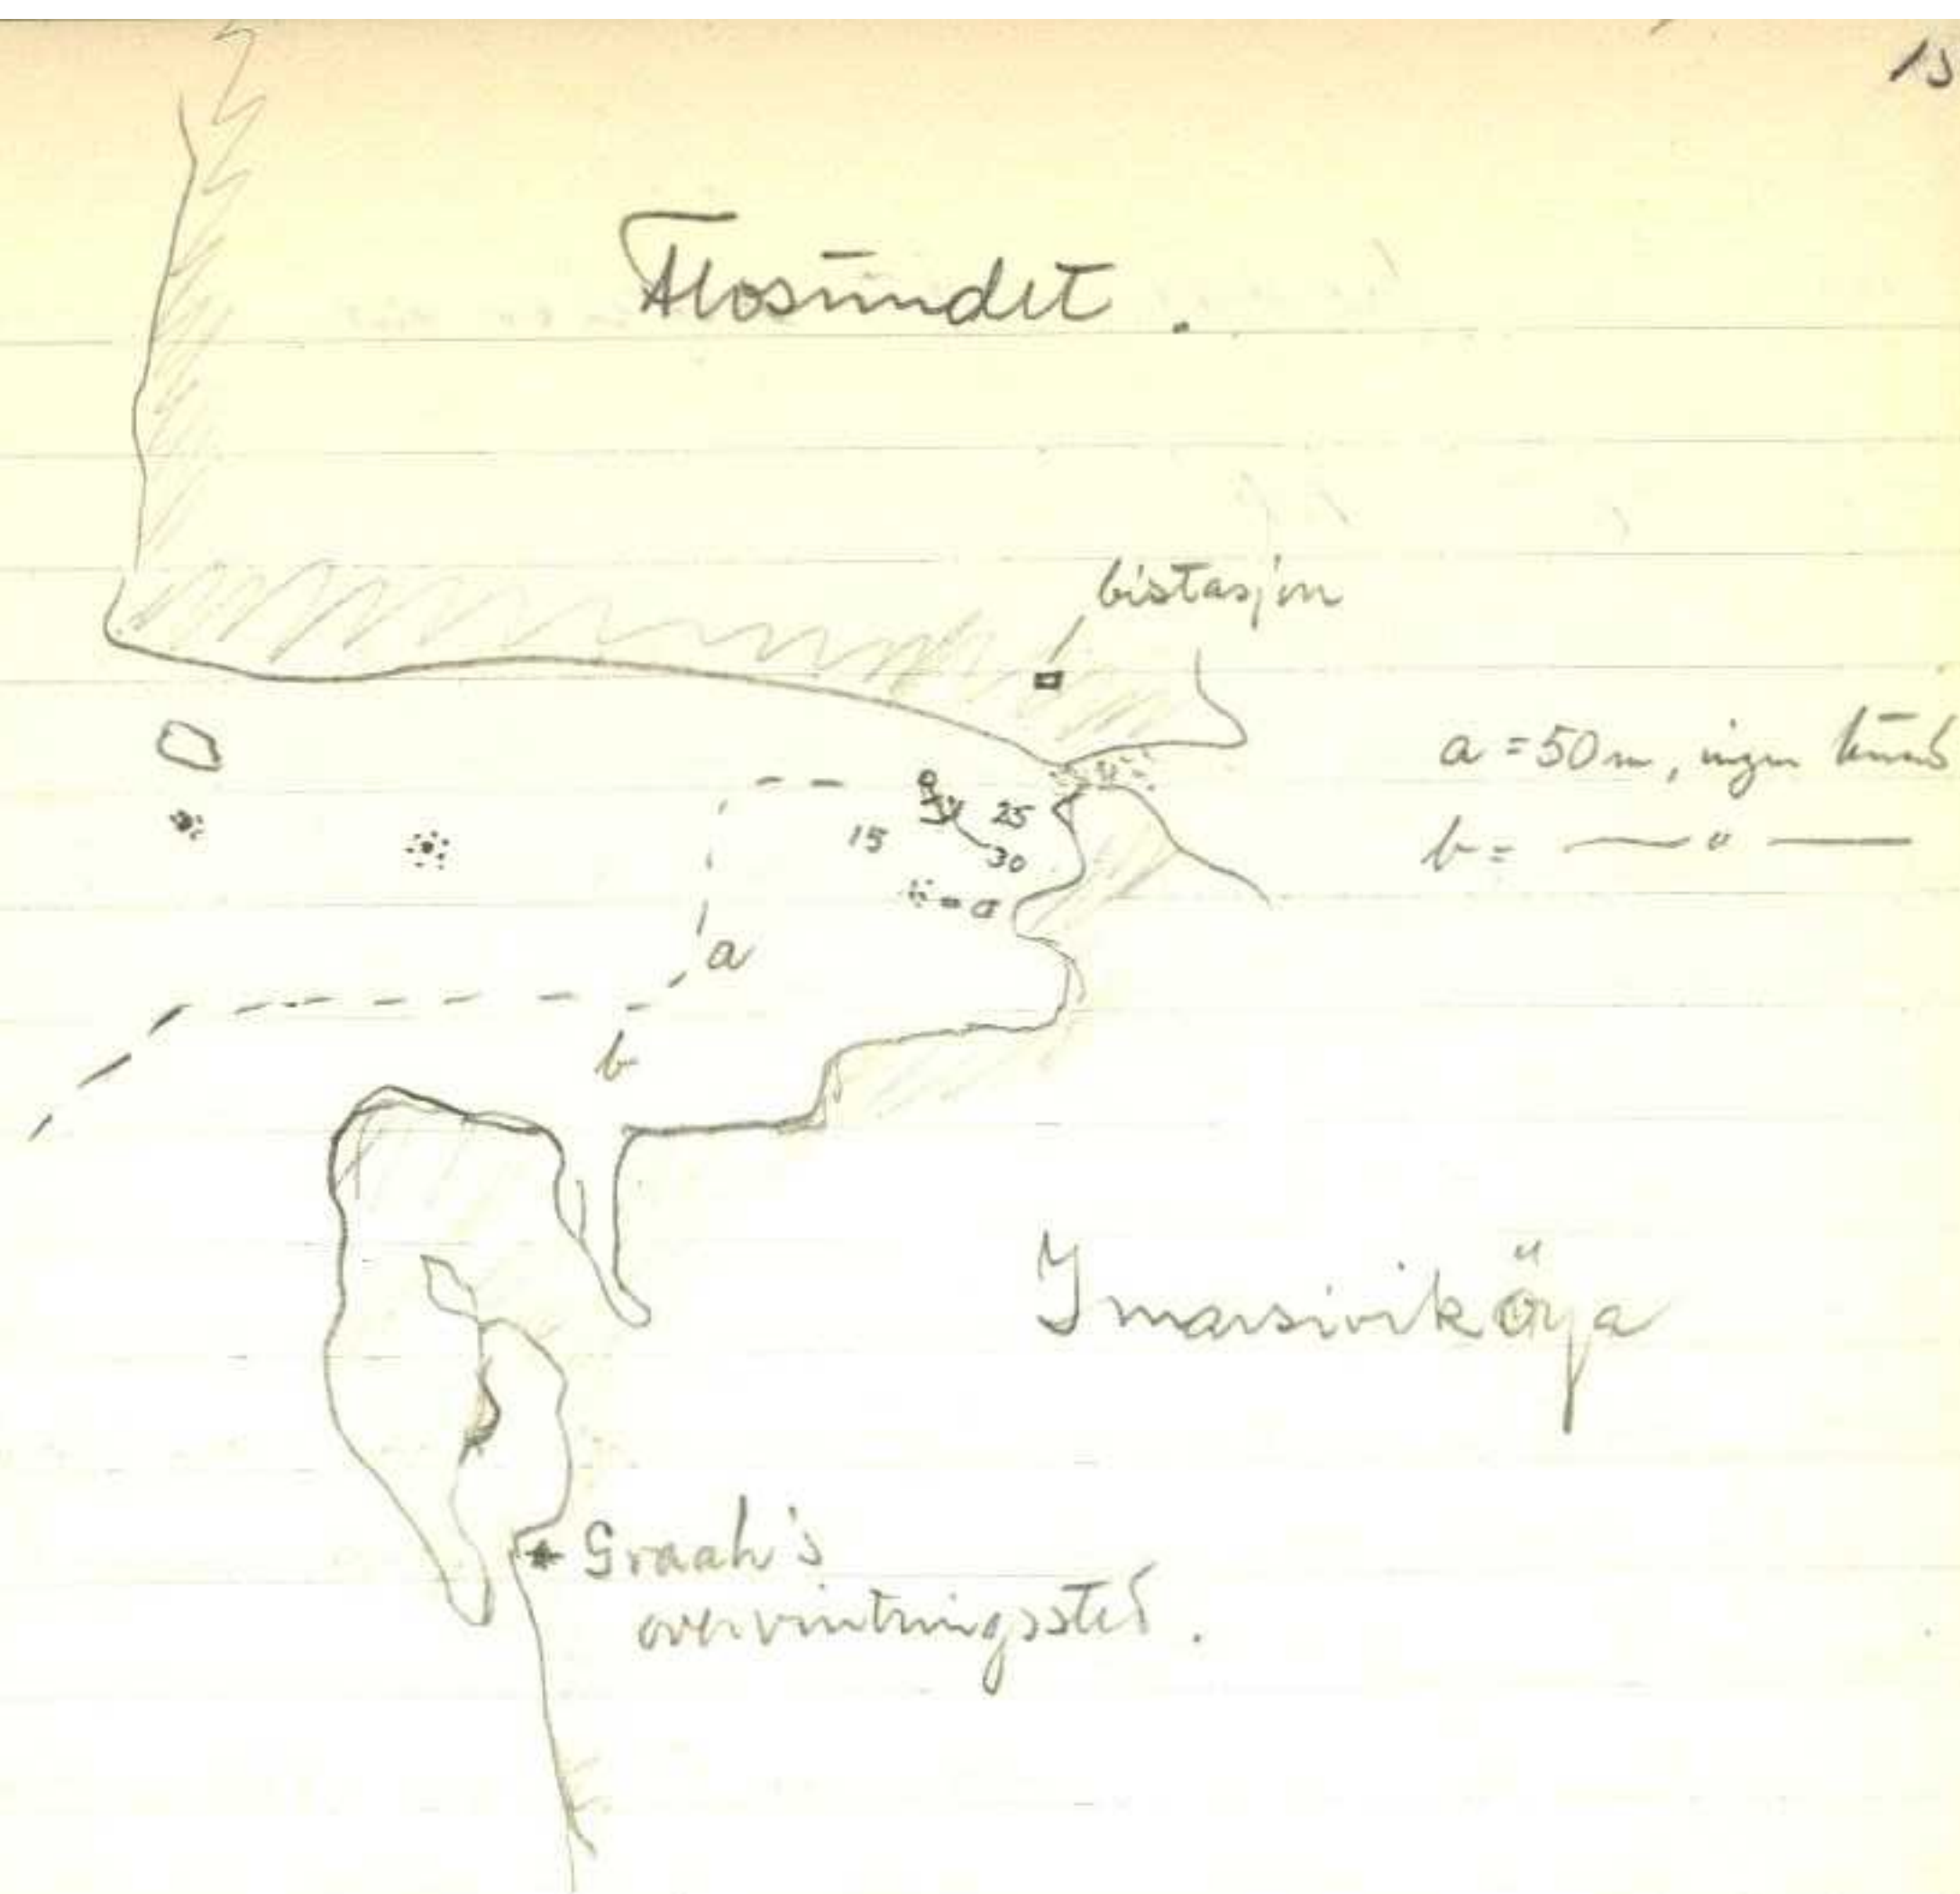 15
Ålosundet.
bistasjon
a = 50 m, ingen bund
b = — " —
25
15
30
a
a
b
Imarsivik öya
Graah's
overvintringssted.